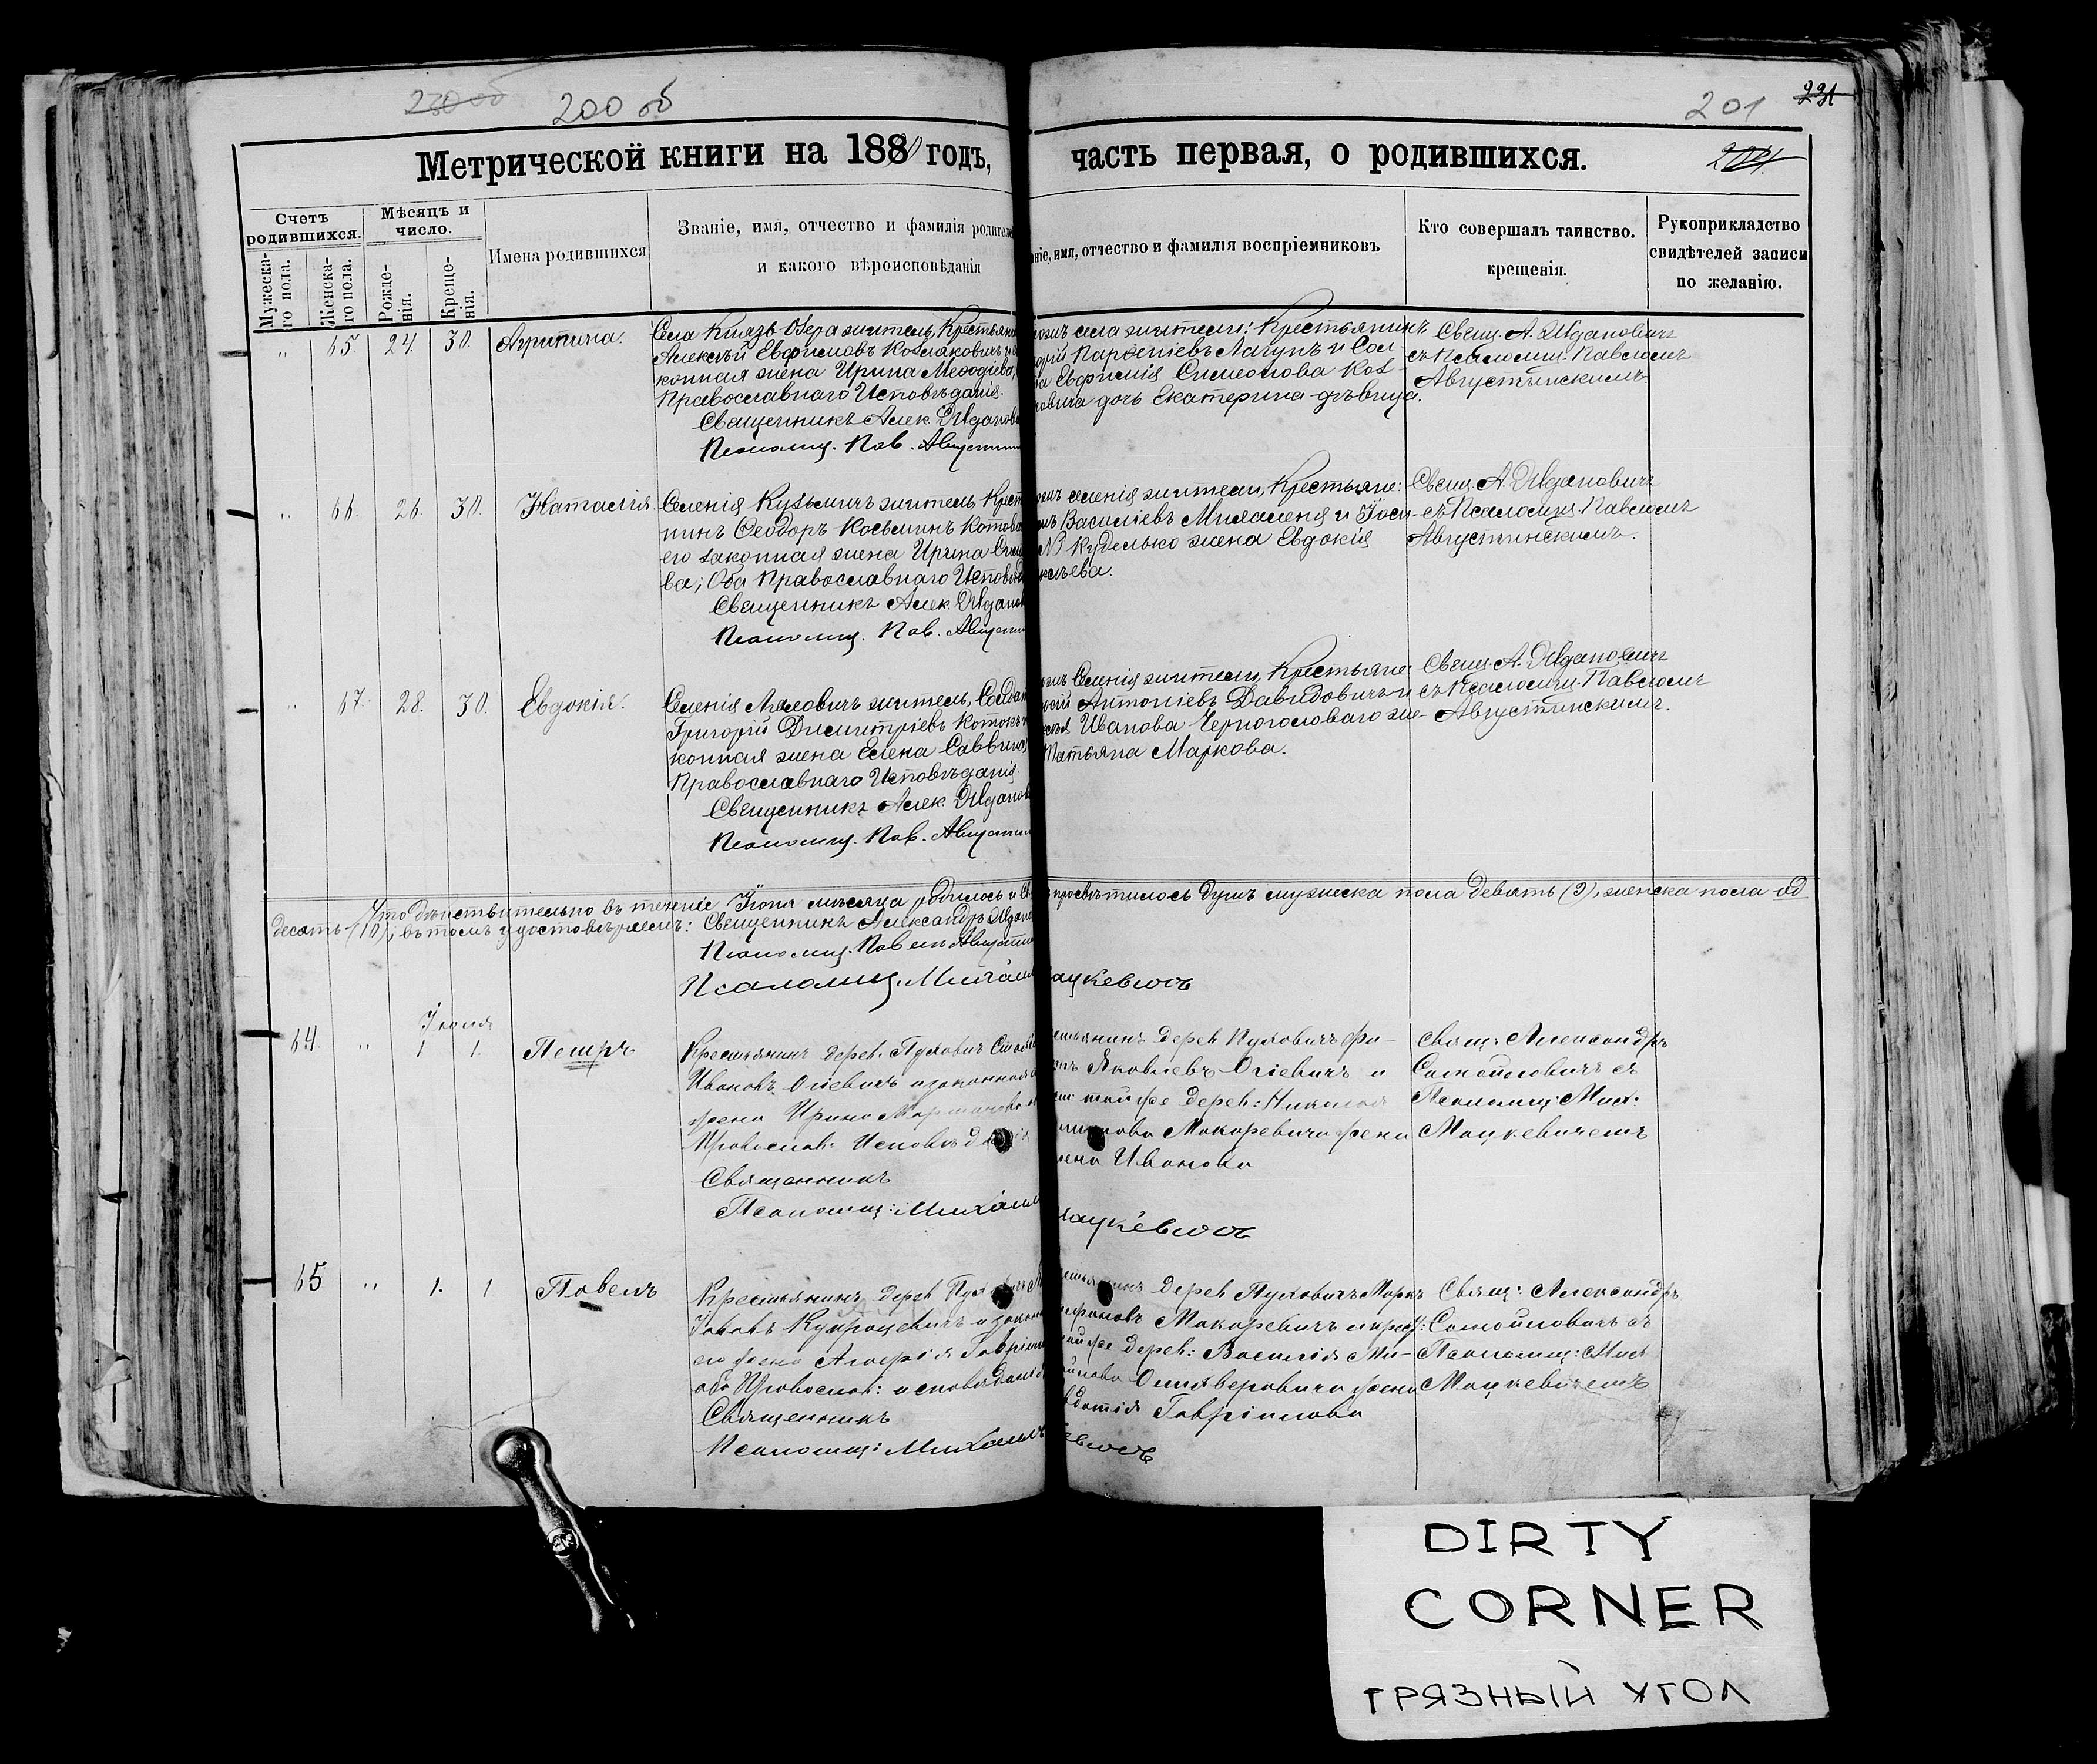 230 об 200 об
201 231
Метрической книги на 1880 годъ, часть первая, о родившихся.
201
Счетъ родившихся.
Мѣсяцъ и число.
Мужеска-го пола.
Женска-го пола.
Рожде-нія.
Креще-нія.
Имена родившихся
Званіе, имя, отчество и фамилія родителе
и какого вѣроисповѣданія
ніе, имя, отчество и фамилія воспріемниковъ
Кто совершалъ таинство.
крещенія.
Рукоприкладство
свидѣтелей записи
по желанію.
" 65. 24. 30. Агрипина.
Села Князь-Озера житель, Крестьяни
Алексѣй Евфимовъ Козлаковичъ и
конная жена Ирина Меѳодіева,
Православнаго Исповѣданія.
Священникъ Алек. Жданов
Псаломщ. Пав. Августин
села жители: Крестьянинъ
Парѳеніевъ Лагунъ и Сол
Евфимія Симеонова Коз-
дочь Екатерина-дѣвица.
Свящ. А. Ждановичъ
съ Псаломщ. Павломъ
Августинскимъ.
" 66. 26. 30. Наталія.
Селенія Кузьмичъ житель, Крест
нинъ Ѳеодоръ Косьминъ Котов
его законная жена Ирина
ва; Оба Православнаго Исповѣд
Священникъ Алек. Жданов
Псаломщ. Пав. Августин
селенія жители, Крестьяне:
Василіевъ Миляленя и Іоси-
Куделько жена Евдокія
Свящ. А. Ждановичъ
съ Псаломщ. Павломъ
Августинскимъ.
" 67. 28. 30. Евдокія.
Селенія Ляховичъ житель, Солдат
Григорій Димитріевъ Котокъ
конная жена Елена Саввина,
Православнаго Исповѣданія.
Священникъ Алек. Жданов
Псаломщ. Пав. Августин
Селенія жители, Крестьяне:
Антоніевъ Давидовичъ и
Иванова Черноголоваго же-
Татьяна Маркова.
Свящ. А. Ждановичъ
съ Псаломщ. Павломъ
Августинскимъ.
Что дѣйствительно въ теченіе Іюня мѣсяца родилось и Св просвѣтилось душъ мужеска пола девять (9), женска пола од
десять (10), въ томъ удостовѣряемъ: Священникъ Александръ Ждано
Псаломщ. Павелъ Августин
Псаломщ. Михаил ацкевичъ
Іюля
64. " 1 1. Петръ
Крестьянинъ дерев. Пуховичъ
Ивановъ Огіевичъ и законная
жена Ирина Мартинова
Православ: Исповѣданія
Священникъ
Псаломщ: Михаил ацкевичъ
дерев. Пуховичъ Фи-
Яковлевъ Огіевичъ и
той же дерев: Николая
Макаревича жена
Иванова
Свящ: Александръ
Самойловичъ съ
Псаломщ: Мих:
Мацкевичемъ
65 " 1. 1 Павелъ
Крестьянинъ дерев. Пуховичъ
Іаковъ Купрацевичъ и закон
его жена Агафія Гавріил
оба Православ: исповѣданія
Священникъ
Псаломщ: Михаилъ евичъ
дерев. Пуховичъ Маркъ
Макаревичъ и крест:
той же дерев: Василія Ми-
жена
Гавріилова
Свящ: Александръ
Самойловичъ съ
Псаломщ: Мих
Мацкевичемъ
DIRTY
CORNER
ГРЯЗНЫЙ УГОЛ